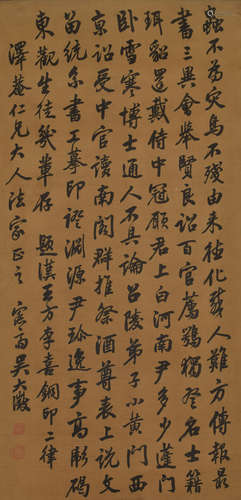 蟲不為灾鳥不殘由来德化感人難方傳報最
書三異會舉賢良詔百官薦鶚獨登名士籍
珥貂還戴侍中冠願君上白河南尹多少蓬門
卧雪寒博士通人不具論召陵弟子小黃門西
京詔受中官讀南閣群推祭酒尊表上說文
留統系書工摹印證淵源尹珍逸事高彪碣
東觀生徒幾輩存 題漢王方李喜銅印二律
澤菴仁兄大人法家正之 愙齋吳大澂